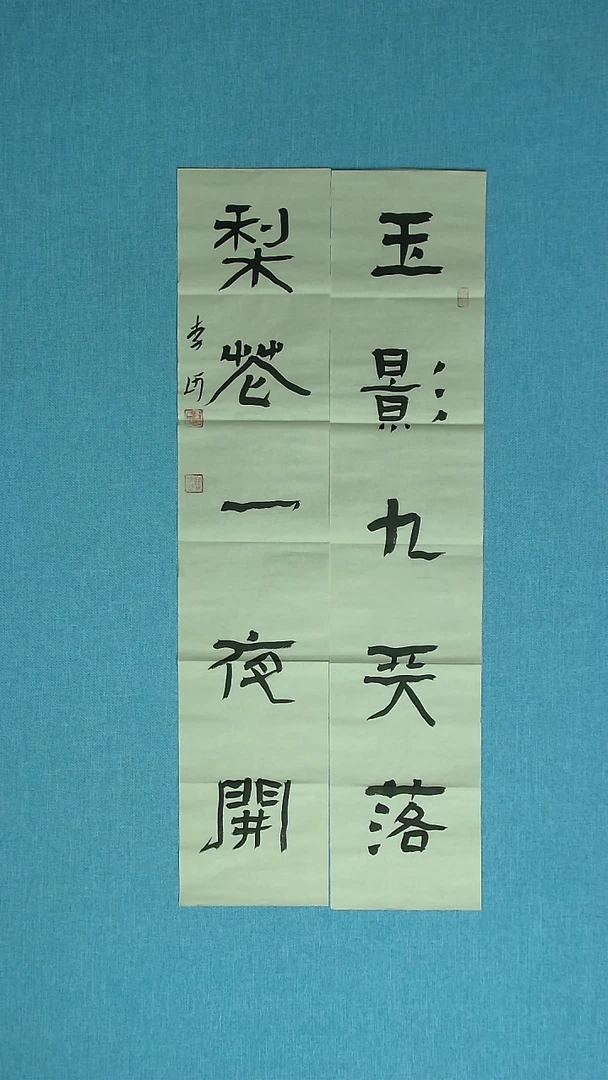 玉影九天落
梨花一夜開
李